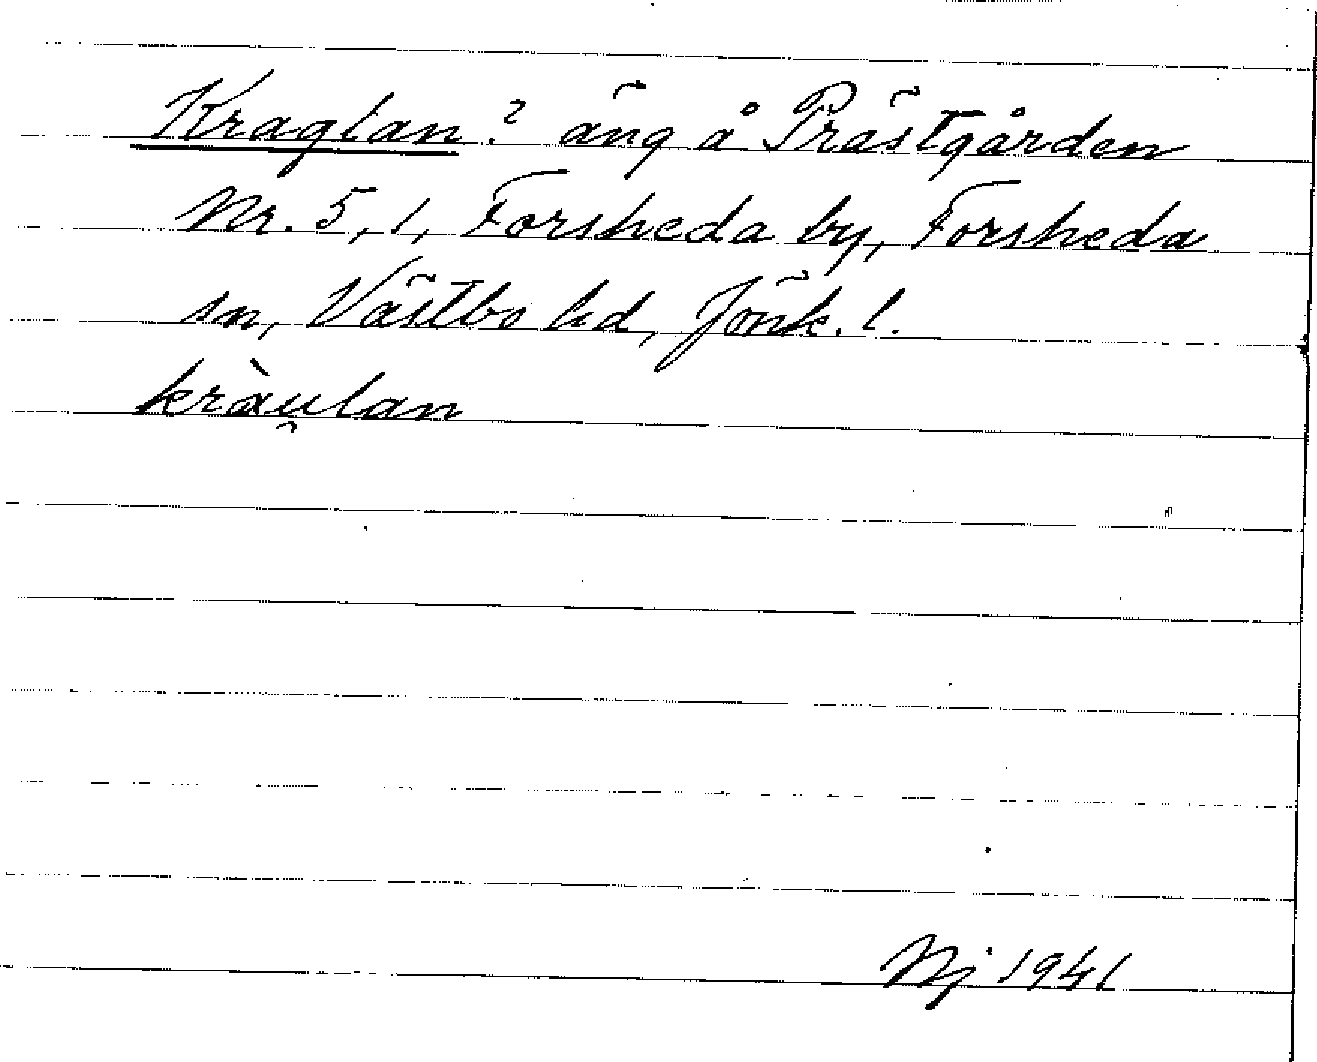 Kraglan? äng å Prästgården
Nr. 5, 1, Forsheda by, Forsheda
sn, Västbo hd, Jönk. l.
kràu̯lan
Nj 1941